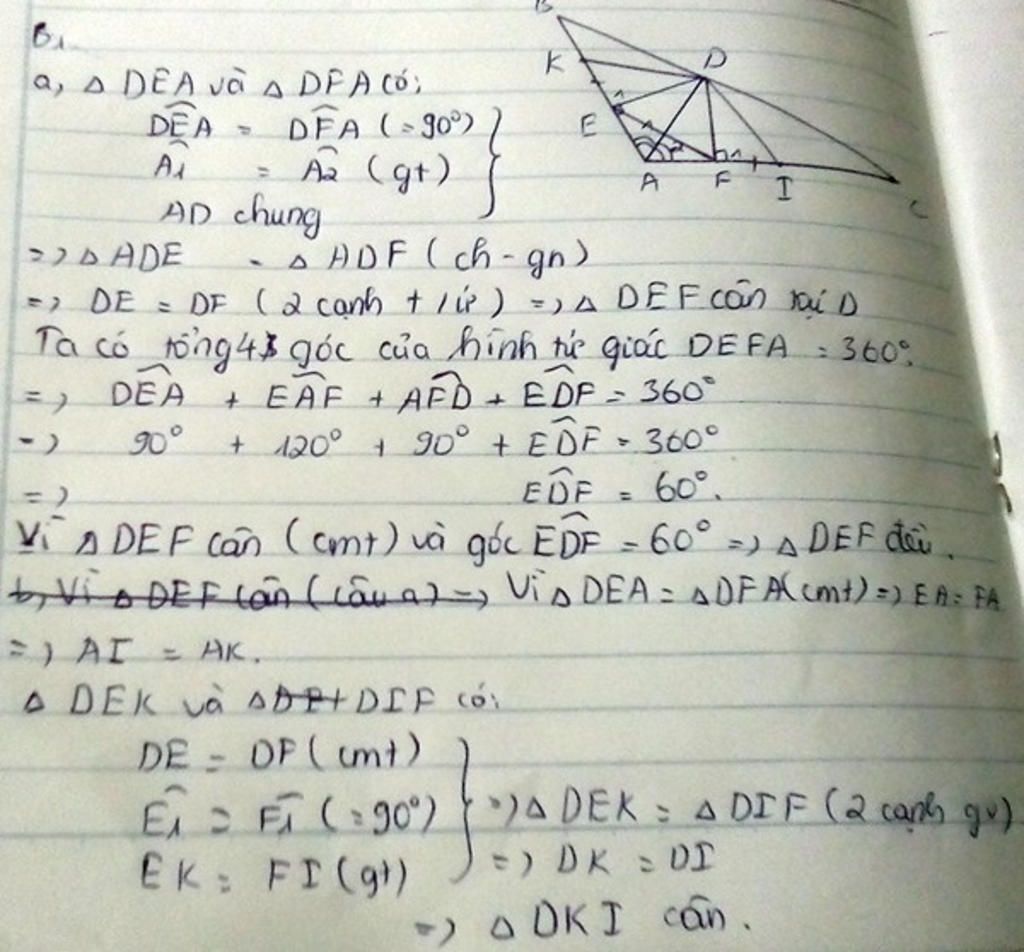 B1.
a, △ DEA và △ DFA có:
DÊA = DF̂A (=90°)
Â1 = Â2 (gt)
AD chung
=> △ ADE = △ ADF (ch - gn)
=> DE = DF (2 cạnh t/ứ) => △ DEF cân tại D
Ta có tổng 4 góc của hình tứ giác DEFA = 360°.
=> DÊA + EÂF + AF̂D + ED̂F = 360°
=> 90° + 120° + 90° + ED̂F = 360°
=> ED̂F = 60°.
Vì △ DEF cân (cmt) và góc ED̂F = 60° => △ DEF đều.
b, Vì △ DEF cân (câu a) => Vì △ DEA = △ DFA (cmt) => EA = FA
=> AI = AK.
△ DEK và △ DIF có:
DE = DF (cmt)
Ê1 = F̂1 (=90°)
EK = FI (gt)
=> △ DEK = △ DIF (2 cạnh gv)
=> DK = DI
=> △ DKI cân.
B
K
D
E
1
1
2
1
A
F
I
C